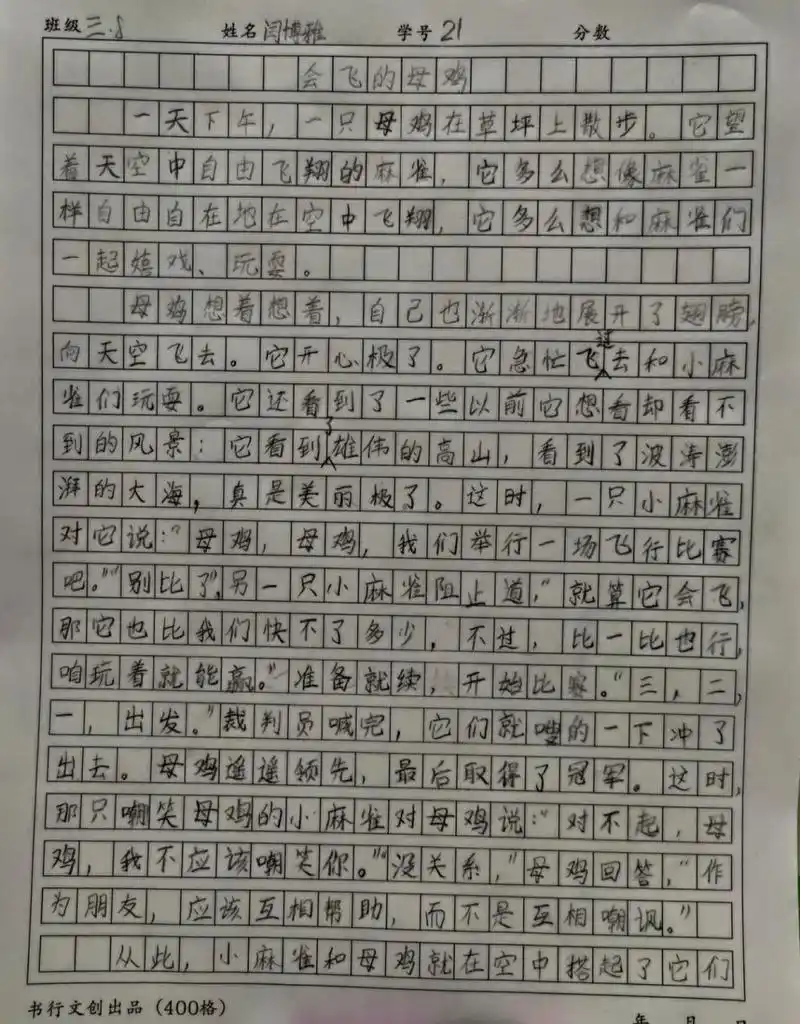 班级 三.8 姓名 闫博雅 学号 21 分数
会飞的母鸡
一天下午，一只母鸡在草坪上散步。它望
着天空中自由飞翔的麻雀，它多么想像麻雀一
样自由自在地在空中飞翔，它多么想和麻雀们
一起嬉戏、玩耍。
母鸡想着想着，自己也渐渐地展开了翅膀，
向天空飞去。它开心极了。它急忙飞过去和小麻
雀们玩耍。它还看到了一些以前它想看却看不
到的风景：它看到了雄伟的高山，看到了波涛澎
湃的大海，真是美丽极了。这时，一只小麻雀
对它说：“母鸡，母鸡，我们举行一场飞行比赛
吧。”“别比了”，另一只小麻雀阻止道，“就算它会飞，
那它也比我们快不了多少，不过，比一比也行，
咱玩着就能赢。”准备就续，开始比赛。“三，二，
一，出发。”裁判员喊完，它们就嗖的一下冲了
出去。母鸡遥遥领先，最后取得了冠军。这时，
那只嘲笑母鸡的小麻雀对母鸡说：“对不起，母
鸡，我不应该嘲笑你。”“没关系，”母鸡回答，“作
为朋友，应该互相帮助，而不是互相嘲讽。”
从此，小麻雀和母鸡就在空中搭起了它们
书行文创出品（400格） 年 月 日